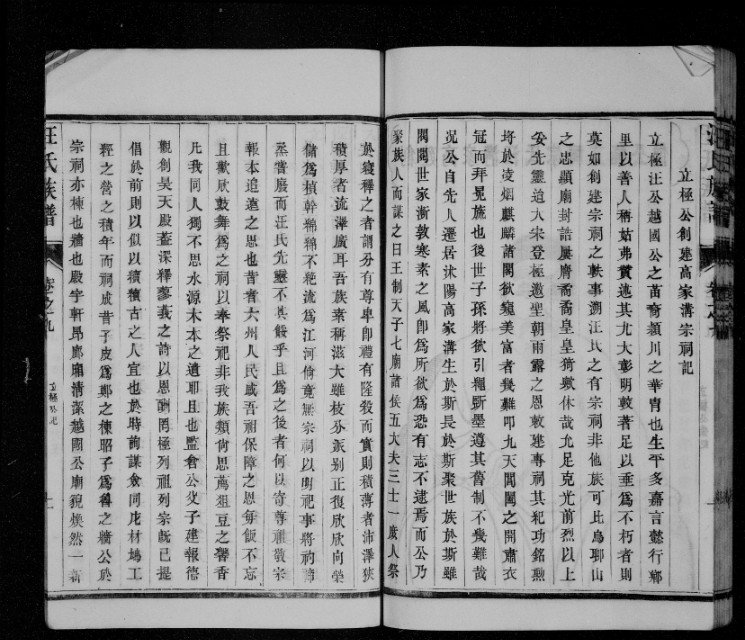 立極公創建高家溝宗祠記
立極汪公越國公之苗裔潁川之華胄也生平多嘉言懿行鄉
里以善人稱姑弗贅述其尤大彰明較著足以垂為不朽者則
莫如創建宗祠之軼事溯汪氏之有宗祠非他族可比烏聊山
之忠顯廟封誥屢膺喬喬皇皇猗歟休哉允足克光前烈以上
妥先靈迨大宋登極邀聖朝雨露之恩敕建專祠其紀功銘勳
埒於凌烟麒麟諸閣欲窺美富者幾難叩九天閶闔之開肅衣
冠而拜冕旒也後世子孫將欲引繩斲墨遵其舊制不幾難哉
況公自先人遷居沭陽高家溝生於斯長於斯聚世族於斯雖
閥閱世家漸敦寒素之風即為所欲為恐有志不逮焉而公乃
聚族人而謀之曰王制天子七廟諸侯五大夫三士一庶人祭
於寢釋之者謂分有尊卑即禮有隆殺而實則積薄者沛澤狹
積厚者流澤廣耳吾族素稱滋大雖枝分派別正復欣欣向榮
儲為楨幹緜緜不絕流為江河倘竟無宗祠以明祀事將礿禘
蒸嘗廢而汪氏先靈不其餒乎且為之後者何以寄尊祖敬宗
報本追遠之思也昔者六州人民咸吾祖保障之恩每飯不忘
且歡欣鼓舞為之祠以奉祭祀非我族類尚思薦俎豆之馨香
凡我同人獨不思水源木本之遺耶且也監倉公父子建報德
觀創昊天殿蓋深釋蓼義之詩以恩酬罔極列祖列宗既已提
倡於前則以似以續續古之人宜也於時詢謀僉同庀材鳩工
經之營之積年而祠成昔子皮為鄭之棟昭子為魯之牆公於
宗祠亦棟也牆也殿宇軒昂廊廟清潔越國公廟貌煥然一新
汪氏族譜
卷之九
立極公記
十
汪氏族譜
卷之九